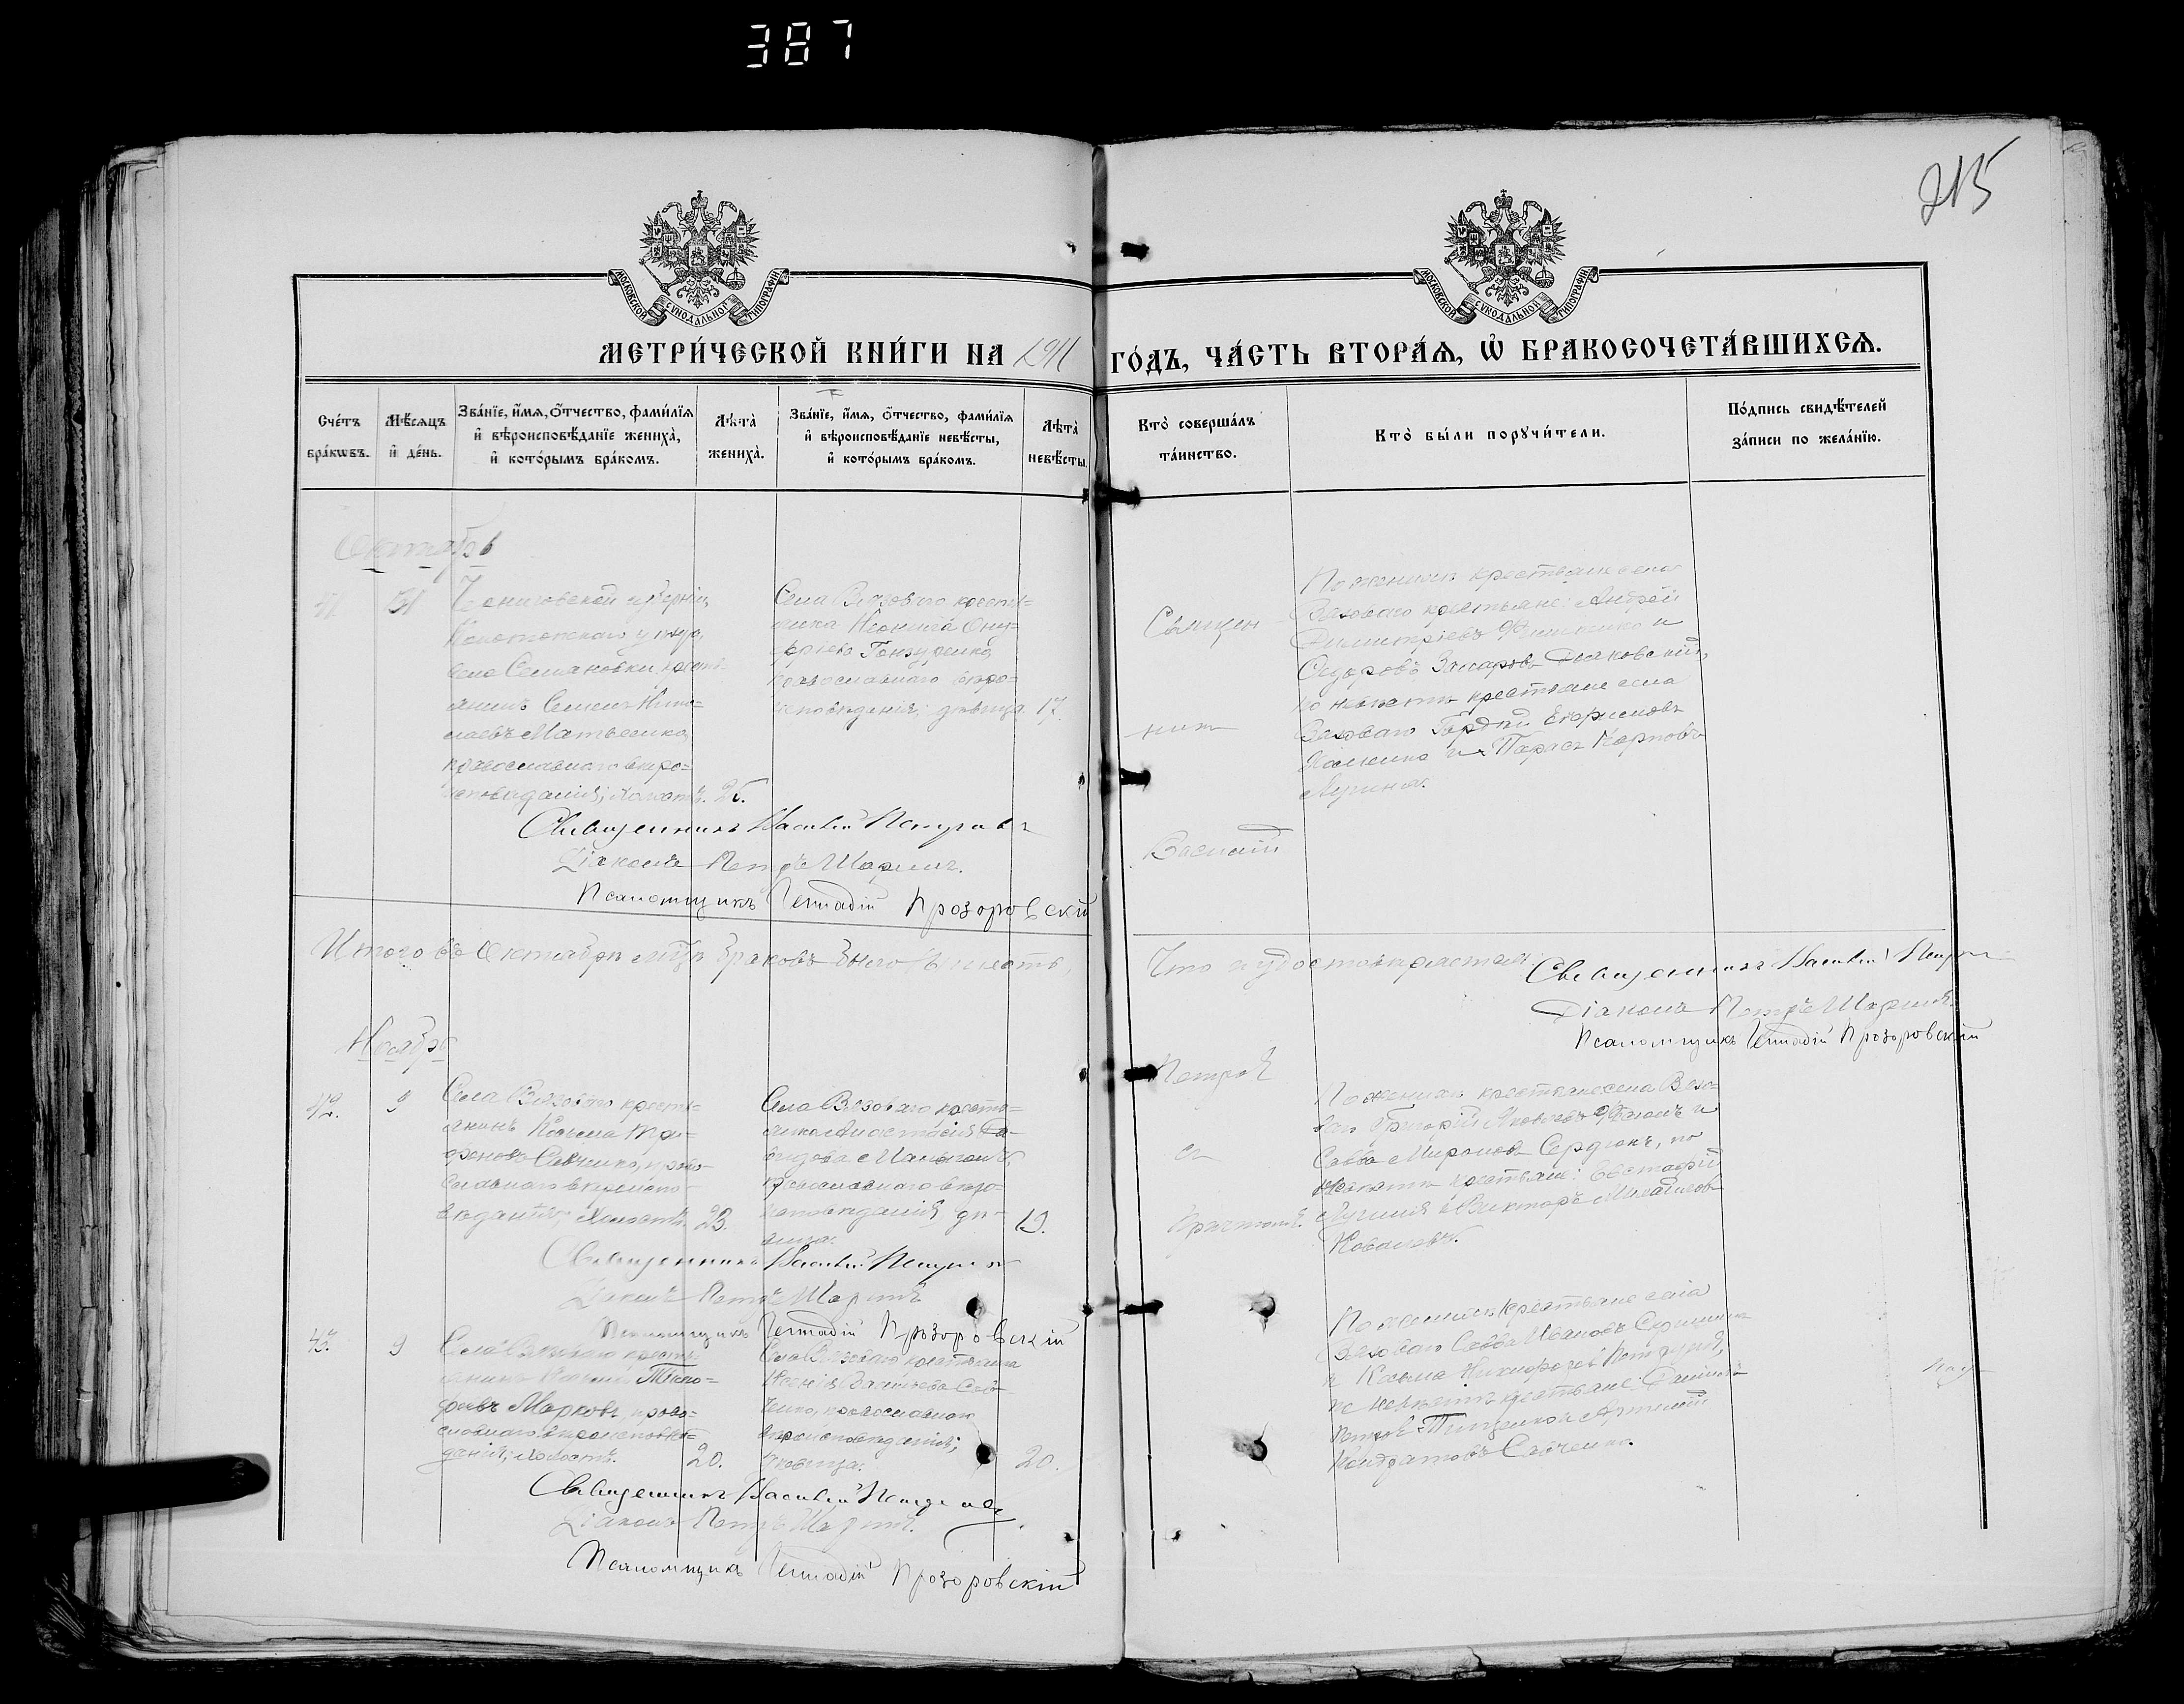 387
215
МОСКОВСКОЙ СУНОДАЛЬНОЙ ТИПОГРАФІИ
МОСКОВСКОЙ СУНОДАЛЬНОЙ ТИПОГРАФІИ
МЕТРИ́ЧЕСКОЙ КНИ́ГИ НА 1911 ГО́ДЪ, ЧА́СТЬ ВТОРА́Ѧ, Ѽ БРАКОСОЧЕТА́ВШИХСѦ.
Сче́тъ бра́кѡвъ.
Мѣ́сѧцъ и҆ де́нь.
Зва́нїе, и҆́мѧ, ѻ҆́тчество, фами́лїѧ и҆ вѣроисповѣ́данїе жениха̀, и҆ кото́рымъ бра́комъ.
Лѣ́та̀ жениха̀.
Зва́нїе, и҆́мѧ, ѻ҆́тчество, фами́лїѧ и҆ вѣроисповѣ́данїе невѣ́сты, и҆ кото́рымъ бра́комъ.
Лѣ́та̀ невѣ́сты.
Кто̀ соверша́лъ та́инство.
Кто̀ бы́ли порꙋчи́тели.
По́дпись свидѣ́телей за́писи по жела́нїю.
Октябрь
41
31
Черниговской губерніи,
уѣзда,
села Семановки крестья-
нинъ Семенъ Нико-
лаевъ Матвеенко,
православнаго вѣро-
исповѣданія; холостъ.
Села Вязоваго кресть-
янка Ону-
фріева
православнаго вѣро-
исповѣданія; дѣвица.
17.
Священ-
никъ
Василій
По женихѣ крестьяне села
Вязоваго крестьяне: Андрей
Димитріевъ и
Захаровъ
по невѣстѣ крестьяне села
Вязоваго
и Тарасъ Карповъ
Лучина.
Священникъ Василій Петровъ
Діаконъ Петръ
Псаломщикъ Геннадій Прозоровскій
Итого въ Октябрѣ мцѣ браковъ было
Что и удостовѣряемъ Священникъ Василій
Діаконъ Петръ
Псаломщикъ Геннадій Прозоровскій
Ноябрь
42.
9
Села Вязоваго кресть-
янинъ
Савченко, право-
славнаго вѣроиспо-
вѣданія; холостъ.
23.
Села Вязоваго кресть-
янка Анастасія Да-
видова
православнаго вѣро-
исповѣданія дѣ-
вица.
19.
Петровъ
съ
причтомъ.
По женихѣ крестьяне села Вязо-
ваго Григорій Яковлевъ и
Савва Мироновъ Сердюкъ, по
невѣстѣ крестьяне: Евстафій
Лучина и Викторъ Михайловъ
Ковалевъ.
Священникъ Василій Петровъ
Діаконъ Петръ
Псаломщикъ Геннадій Прозоровскій
43.
9
Села Вязоваго кресть-
янинъ
Марковъ, право-
славнаго вѣроисповѣ-
данія; холостъ.
20.
Села Вязоваго крестьянка
Ксенія Васильева Сав-
ченко, православнаго
вѣроисповѣданія;
дѣвица.
20.
По женихѣ крестьяне села
Вязоваго Савва Ивановъ
и Козьма Никифоровъ
по невѣстѣ крестьяне:
Тищенко и Артемій
Кондратовъ Савченко.
Священникъ Василій Петровъ
Діаконъ Петръ
Псаломщикъ Геннадій Прозоровскій